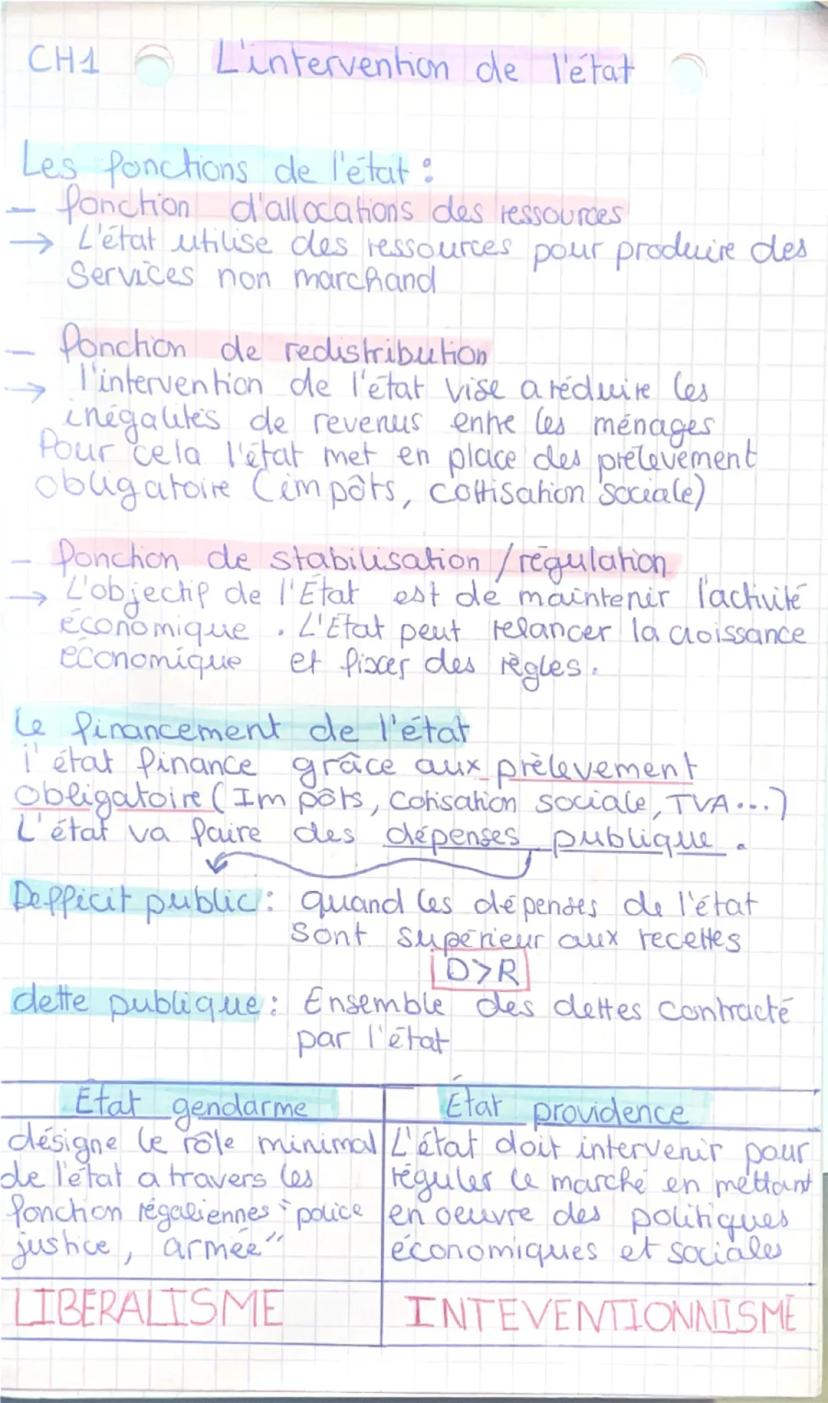 CH1 L'intervention de l'état
Les fonctions de l'état :
- fonction d'allocations des ressources
→ L'état utilise des ressources pour produire des
Services non marchand
- fonction de redistribution
→ l'intervention de l'état vise a réduire les
inégalités de revenus entre les ménages
Pour cela l'état met en place des prélevement
obligatoire (impôts, cottisation sociale)
- fonction de stabilisation / régulation
→ L'objectif de l'État est de maintenir l'activité
économique . L'État peut relancer la croissance
economique et fixer des règles.
Le financement de l'état
l'état finance grâce aux prèlevement
obligatoire (Impôts, cotisation sociale, TVA...)
L'état va faire des dépenses publique .
Defficit public : quand les dépenses de l'état
sont supérieur aux recettes
D>R
dette publique : Ensemble des dettes contracté
par l'état
État gendarme
désigne le rôle minimal
de l'état a travers les
fonction régaliennes "police
justice, armée"
LIBERALISME
État providence
L'état doit intervenir pour
réguler le marché en mettant
en oeuvre des politiques
économiques et sociales
INTEVENTIONNISME